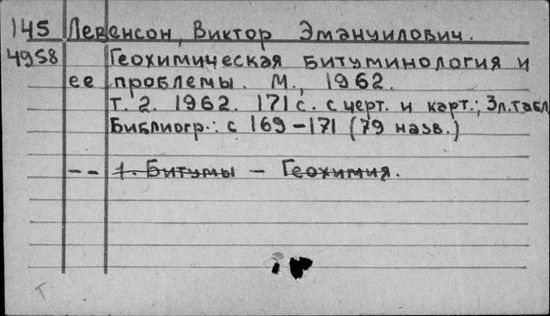 145 Левенсон, Виктор Эмануилович.
4958 Геохимическая битуминология и
ее проблемы. М., 1962.
Т. 2. 1962. 171 с. с черт. и карт.; 3л.табл
Библиогр.: с 169-171 (79 назв.)
-- 1. Битумы - Геохимия.
Т